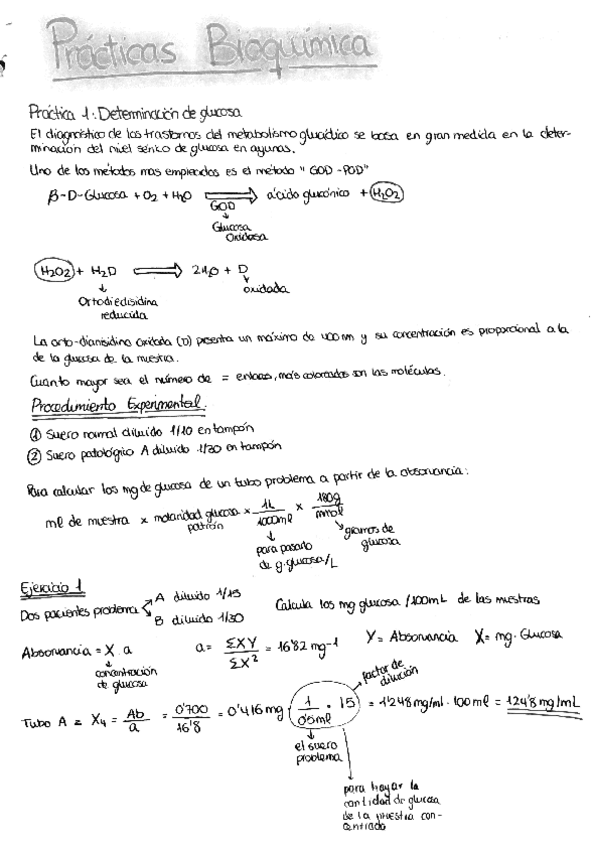 Prácticas Bioquímica
Práctica 1: Determinación de glucosa
El diagnóstico de los trastornos del metabolismo glucídico se basa en gran medida en la deter-
minación del nivel sérico de glucosa en ayunas.
Uno de los métodos mas empleados es el método "GOD-POD"
β-D-Glucosa + O2 + H2O ⟹ ácido glucónico + H2O2
GOD
↓
Glucosa
Oxidasa
H2O2 + H2D ⟹ 2H2O + D
↓ ↓
oxidada
reducida
La orto-dianisidina oxidada (D) presenta un máximo de 400 nm y su concentración es proporcional a la
de la glucosa de la muestra.
Cuanto mayor sea el número de = enlaces, más coloreadas son las moléculas.
Procedimiento Experimental.
① Suero normal diluido 1/10 en tampón
② Suero patológico A diluido 1/30 en tampón
Para calcular los mg de glucosa de un tubo problema a partir de la absorvancia:
ml de muestra x molaridad glucosa patrón x 1L/1000ml x 180g/mmol
↓
para pasarlo
de g.glucosa/L
gramos de
glucosa
Ejercicio 1
Dos pacientes problema
A diluido 1/15
B diluido 1/30
Calcula los mg glucosa /100mL de las muestras
Absorvancia = X . a
↓
concentración
de glucosa
a = ΣXY / ΣX² = 16'82 mg-1
Y = Absorvancia X = mg. Glucosa
factor de
dilución
Tubo A = X4 = Ab/a = 0'700/16'8 = 0'416 mg (1/0'5ml . 15) = 1'248 mg/ml . 100 ml = 124'8 mg/mL
↓
el suero
problema
para hayar la
cantidad de glucosa
de la muestra con-
centrada